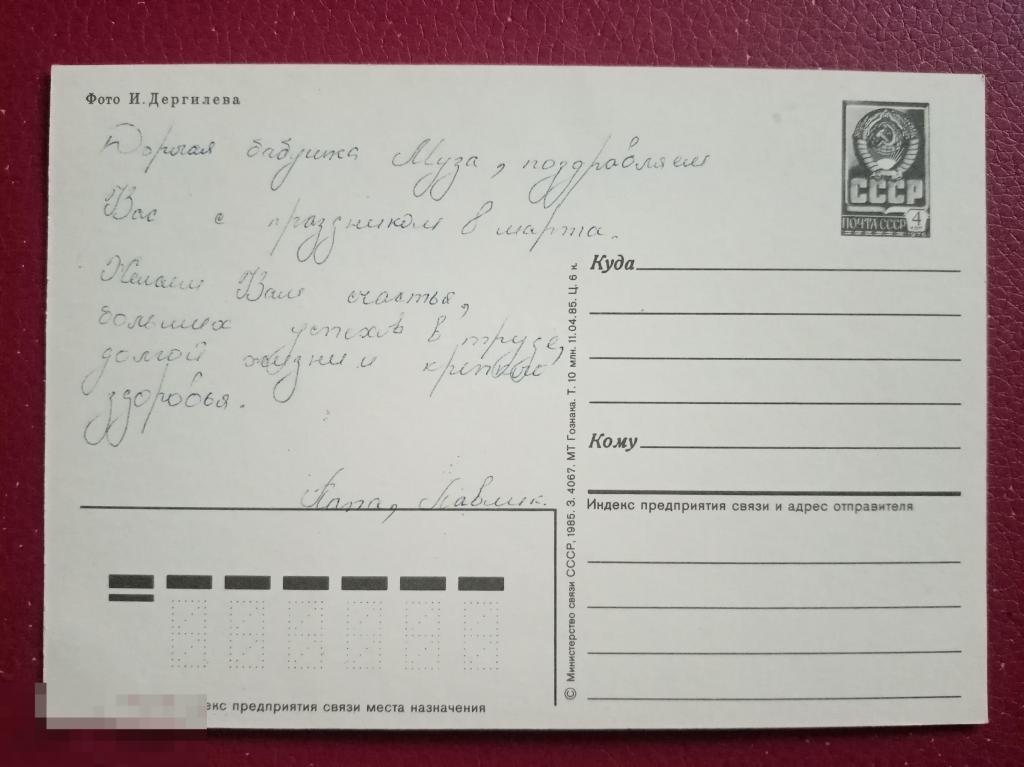 Фото И. Дергилева
Дорогая бабушка Муза, поздравляем
Вас с праздником 8 марта.
Желаем Вам счастья,
больших успехов в труде,
долгой жизни и крепкого
здоровья.
Папа, Павлик.
СССР
ПОЧТА СССР 4
Куда
Кому
Индекс предприятия связи и адрес отправителя
© Министерство связи СССР, 1985. З. 4067. МТ Гознака. Т. 10 млн. 11.04.85. Ц. 6 к.
екс предприятия связи места назначения